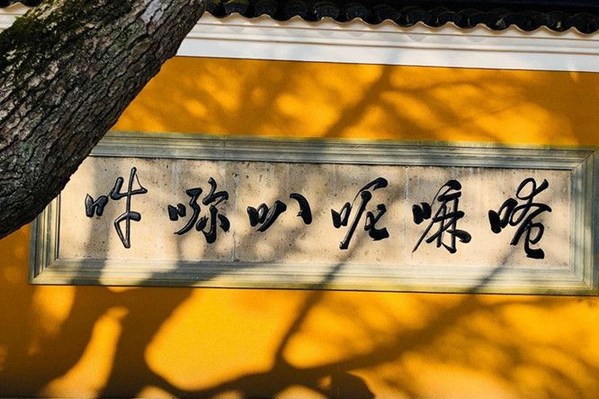 唵嘛呢叭咪吽